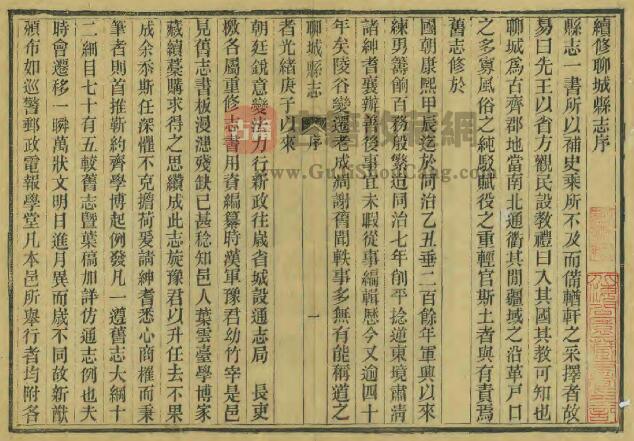 續修聊城縣志序
縣志一書所以補史乘所不及而備輶軒之采擇者故
易曰先王以省方觀民設教禮曰入其國其教可知也
聊城為古齊郡地當南北通衢其間疆域之沿革戶口
之多寡風俗之純駁賦役之重輕官斯土者與有責焉
舊志修於
國朝康熙甲辰迄於同治乙丑垂二百餘年軍興以來
練勇籌餉百務殷繁迨同治七年削平捻逆東境肅清
諸紳耆襄辦善後事宜未暇從事編輯歷今又逾四十
年矣陵谷變遷老成凋謝舊聞軼事多無有能稱道之
聊城縣志 序 一
者光緒庚子以來
朝廷銳意變法力行新政往歲省城設通志局 長吏
檄各屬重修志書用資編纂時漢軍豫君幼竹宰是邑
見舊志書板漫漶殘缺已甚稔知邑人葉雲臺學博家
藏續藁購求得之思纘成此志旋豫君以升任去不果
成余忝斯任深懼不克擔荷爰請紳耆悉心商榷而秉
筆者則首推靳約齊學博起例發凡一遵舊志大綱十
二細目七十有五較舊志暨葉稿加詳仿通志例也夫
時會遷移一瞬萬狀文明日進月異而歲不同故新猷
頒布如巡警郵政電報學堂凡本邑所舉行者均附各
古籍收藏網
www.GuJiShouCang.com